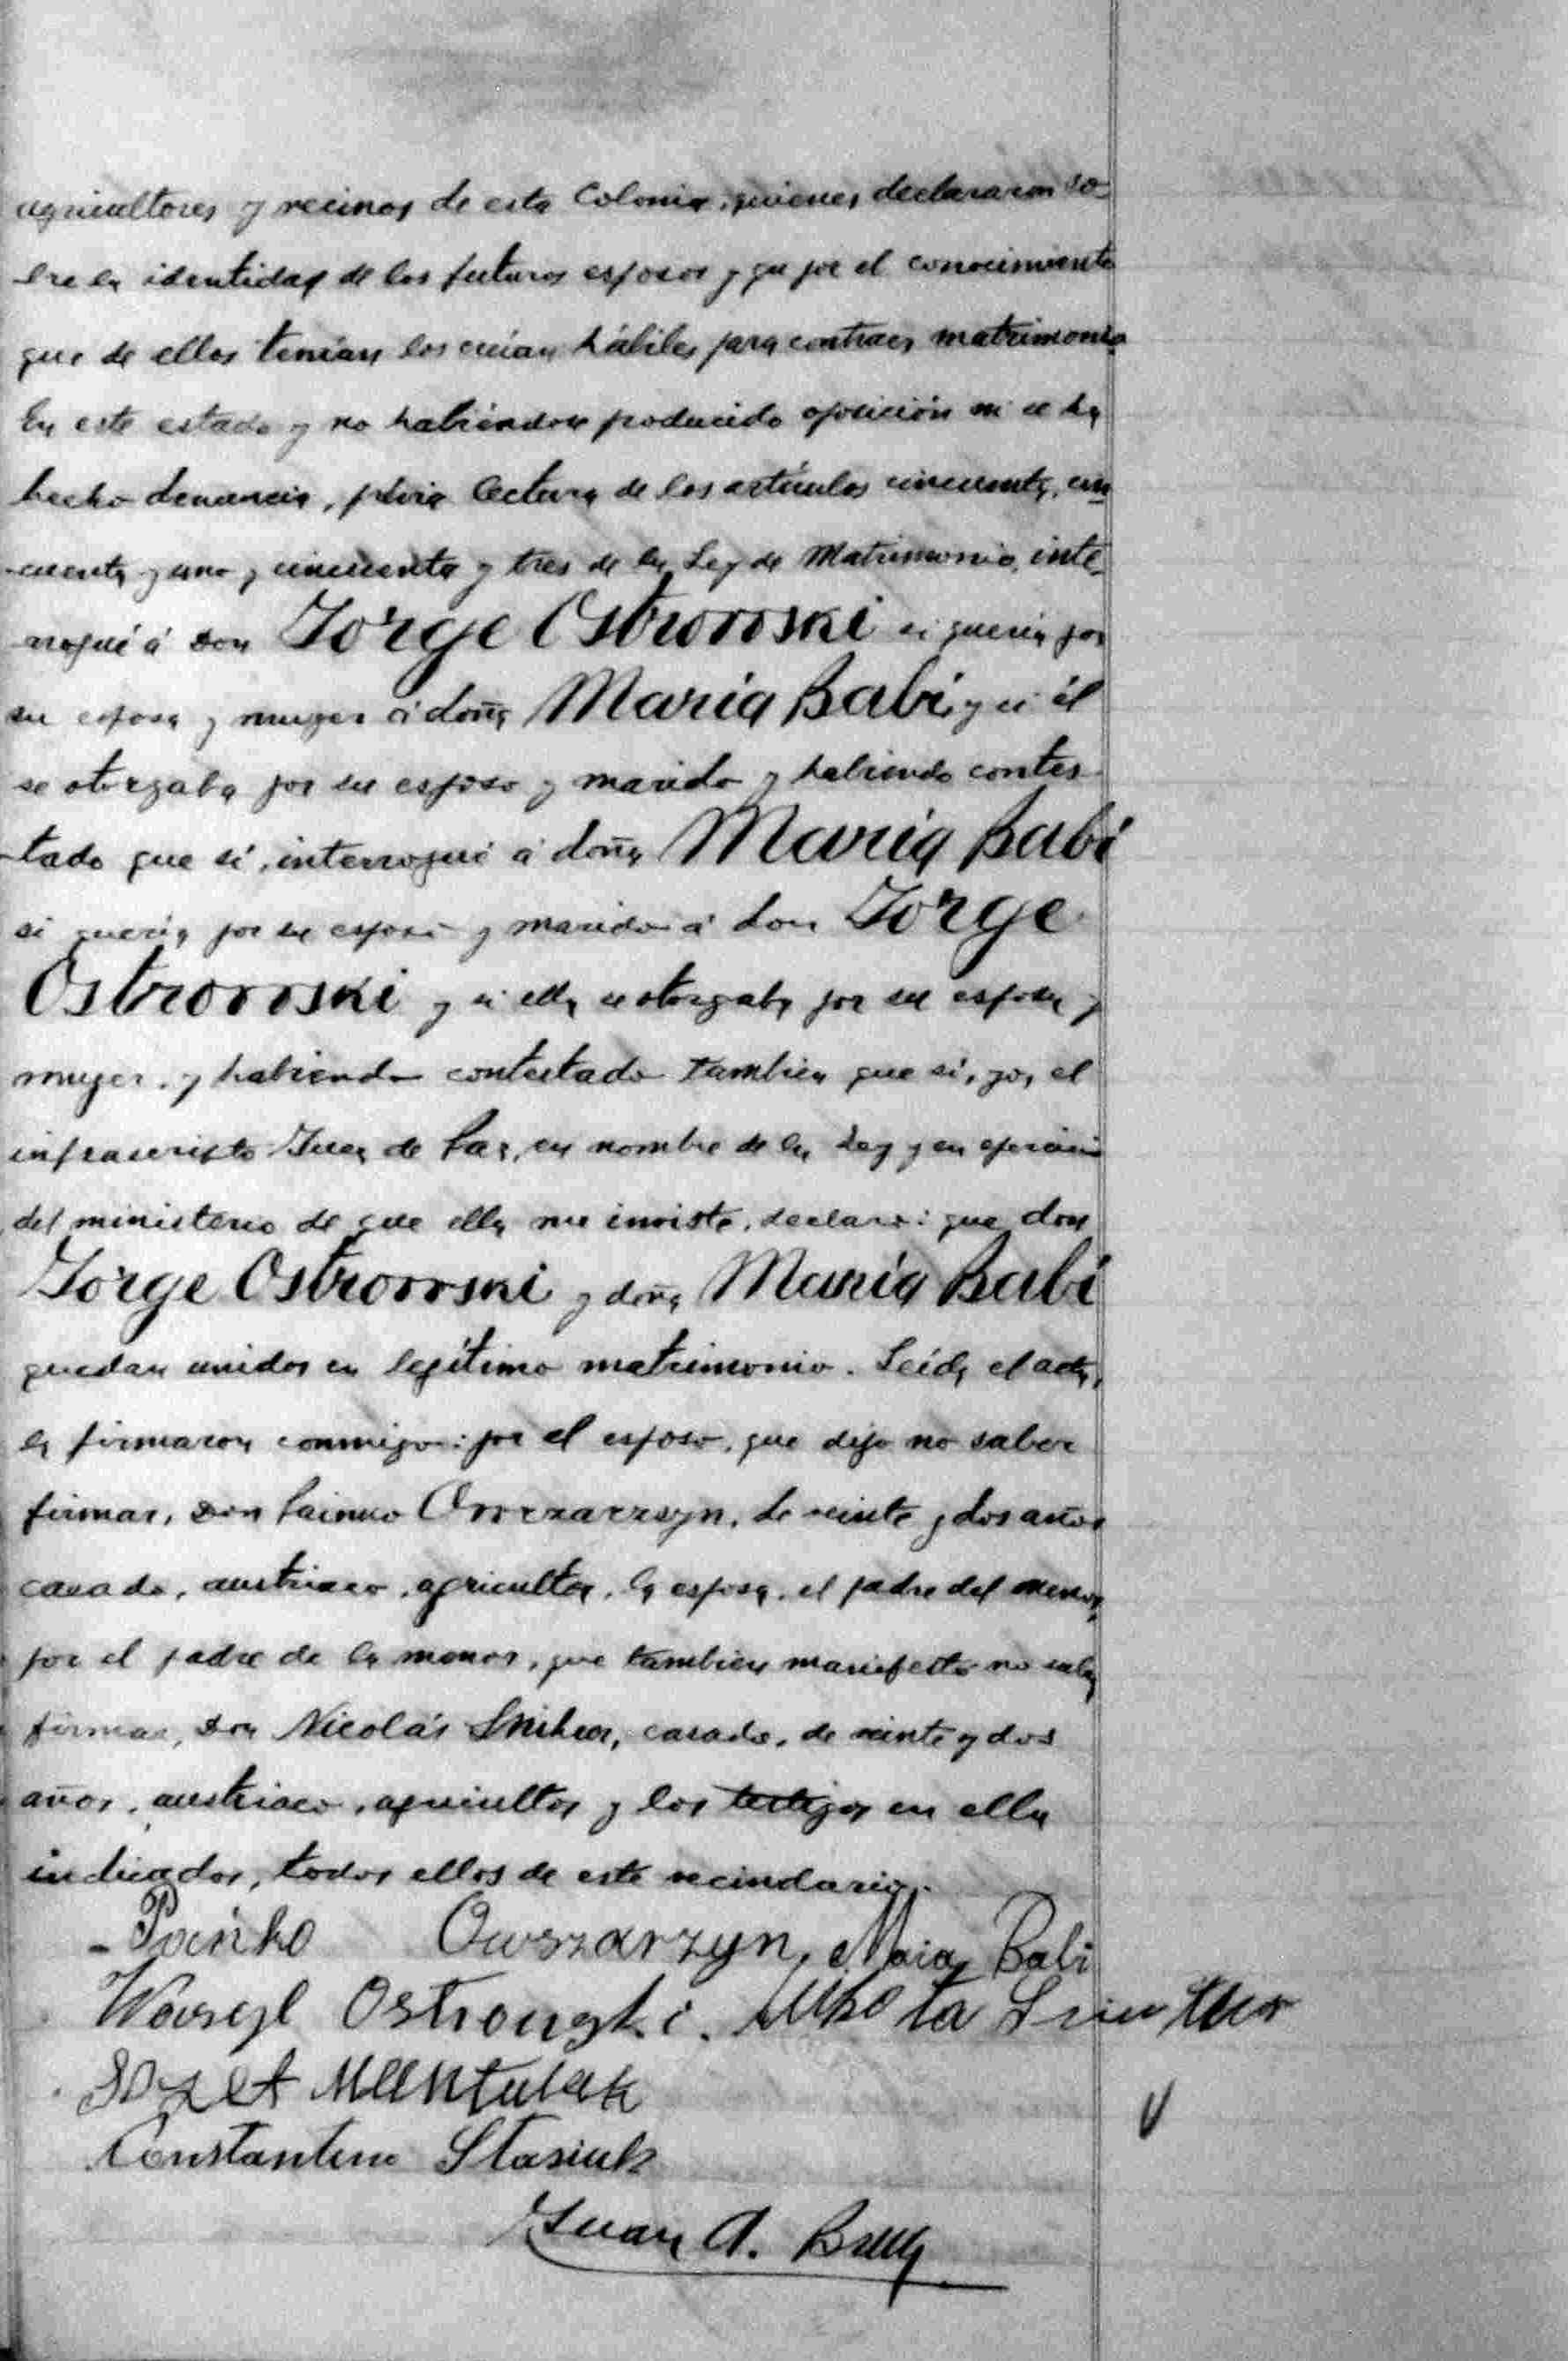 agricultores y vecinos de esta Colonia, quienes declararon so-
-bre la identidad de los futuros esposos y que por el conocimiento
que de ellos tenían los creían hábiles para contraer matrimonio.
En este estado y no habiéndose producido oposición ni se ha
hecho denuncia, prévia lectura de los artículos cincuenta, cin-
-cuenta y uno y cincuenta y tres de la Ley de Matrimonio, inte-
-rrogué á don Jorge Ostrowski si quería por
su esposa y muger á doña María Babi y si él
se otorgaba por su esposo y marido y habiendo contes-
-tado que sí, interrogué á doña María Babi
si quería por su esposo y marido á don Jorge
Ostrowski y si ella se otorgaba por su esposa y
muger, y habiendo contestado tambien que sí, yo, el
infrascripto Juez de Paz, en nombre de la Ley y en ejercicio
del ministerio de que ella me inviste, declaro: que don
Jorge Ostrowski y doña María Babi
quedan unidos en legítimo matrimonio. Leída el acta,
la firmaron conmigo: por el esposo, que dijo no saber
firmar, don Painko Owszarzyn, de veinte y dos años
casado, austriaco, agricultor, la esposa, el padre del menor,
por el padre de la menor, que tambien manifestó no saber
firmar, don Nicolás casado, de veinte y dos
años, austriaco, agricultor y los testigos en ella
indicados, todos ellos de este vecindario.
-Pańko Owszarzyn, Maia Babi
Wasyl Ostrouski. Mikola
Jozef Muntulak
Constantino Stasiuk
Juan A.